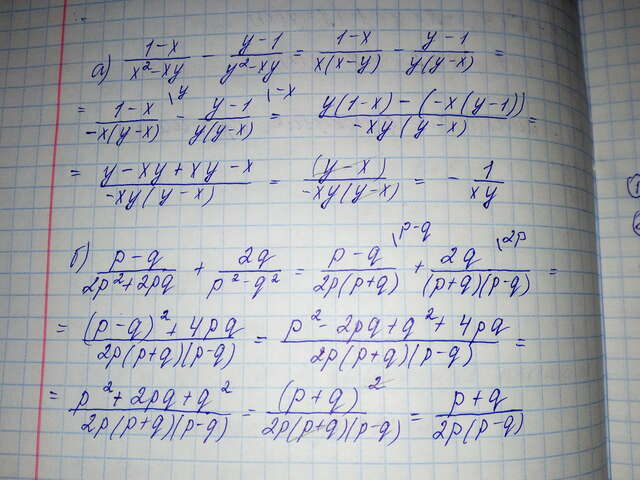 а) (1-x)/(x²-xy) - (y-1)/(y²-xy) = (1-x)/(x(x-y)) - (y-1)/(y(y-x)) =
= (1-x)/(-x(y-x)) \y - (y-1)/(y(y-x)) \-x = (y(1-x)-(-x(y-1)))/(-xy(y-x)) =
= (y-xy+xy-x)/(-xy(y-x)) = (y-x)/(-xy(y-x)) = -1/(xy)
б) (p-q)/(2p²+2pq) + 2q/(p²-q²) = (p-q)/(2p(p+q)) \p-q + 2q/((p+q)(p-q)) \2p =
= ((p-q)²+4pq)/(2p(p+q)(p-q)) = (p²-2pq+q²+4pq)/(2p(p+q)(p-q)) =
= (p²+2pq+q²)/(2p(p+q)(p-q)) = (p+q)²/(2p(p+q)(p-q)) = (p+q)/(2p(p-q))